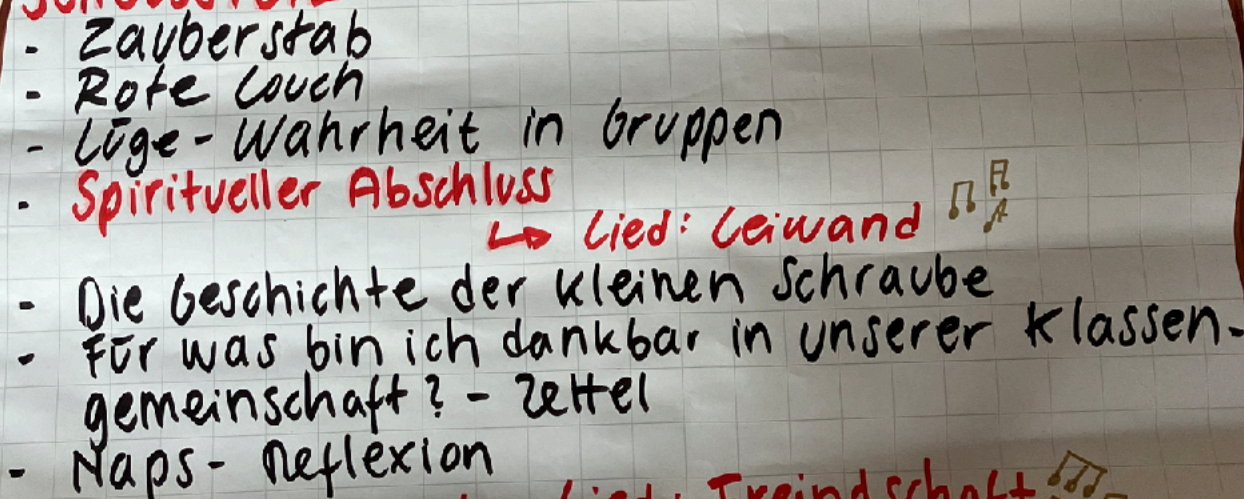 - Zauberstab
- Rote Couch
- Lüge - Wahrheit in Gruppen
- Spiritueller Abschluss
↳ Lied: Leiwand
- Die Geschichte der kleinen Schraube
- Für was bin ich dankbar in unserer Klassen-
gemeinschaft? - Zettel
- Naps - Reflexion